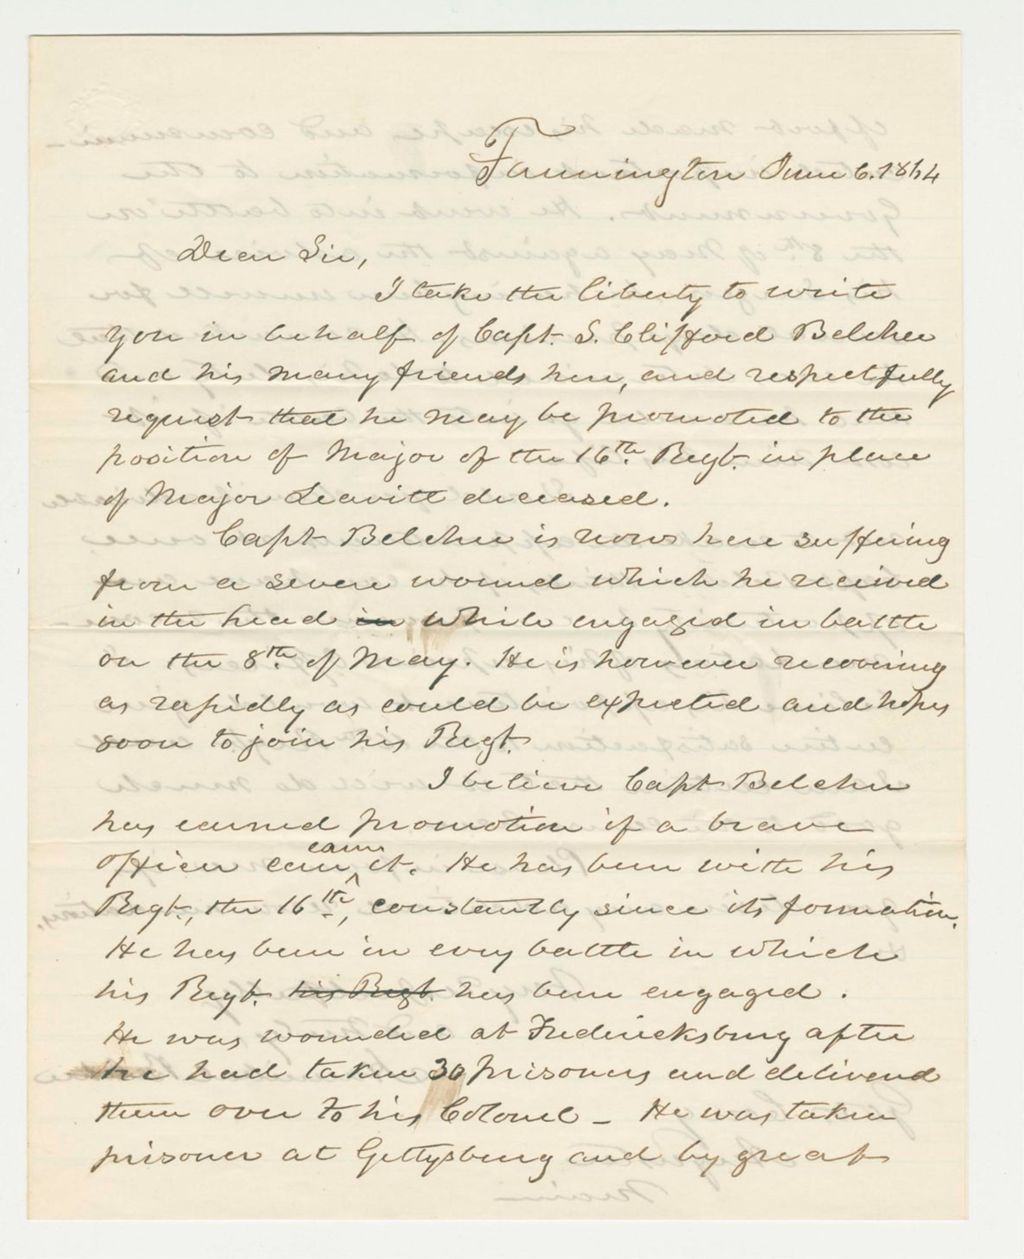 Farmington June 6. 1864
Dear Sir,
I take the liberty to write
you in behalf of Capt. S. Clifford Belcher
and his many friends here, and respectfully
request that he may be promoted to the
position of Major of the 16th. Regt. in place
of Major Leavitt deceased.
Capt Belcher is now here suffering
from a severe wound which he received
in the head in while engaged in battle
on the 8th. of May. He is however recovering
as rapidly as could be expected and hopes
soon to join his Regt.
I believe Capt Belcher
has earned promotion if a brave
officer can earn it. He has been with his
Regt., the 16th, constantly since its formation.
He has been in every battle in which
his Regt. his Regt. has been engaged.
He was wounded at Fredericksburg after
he had taken 30 prisoners and delivered
them over to his Colonel – He was taken
prisoner at Gettysburg and by great